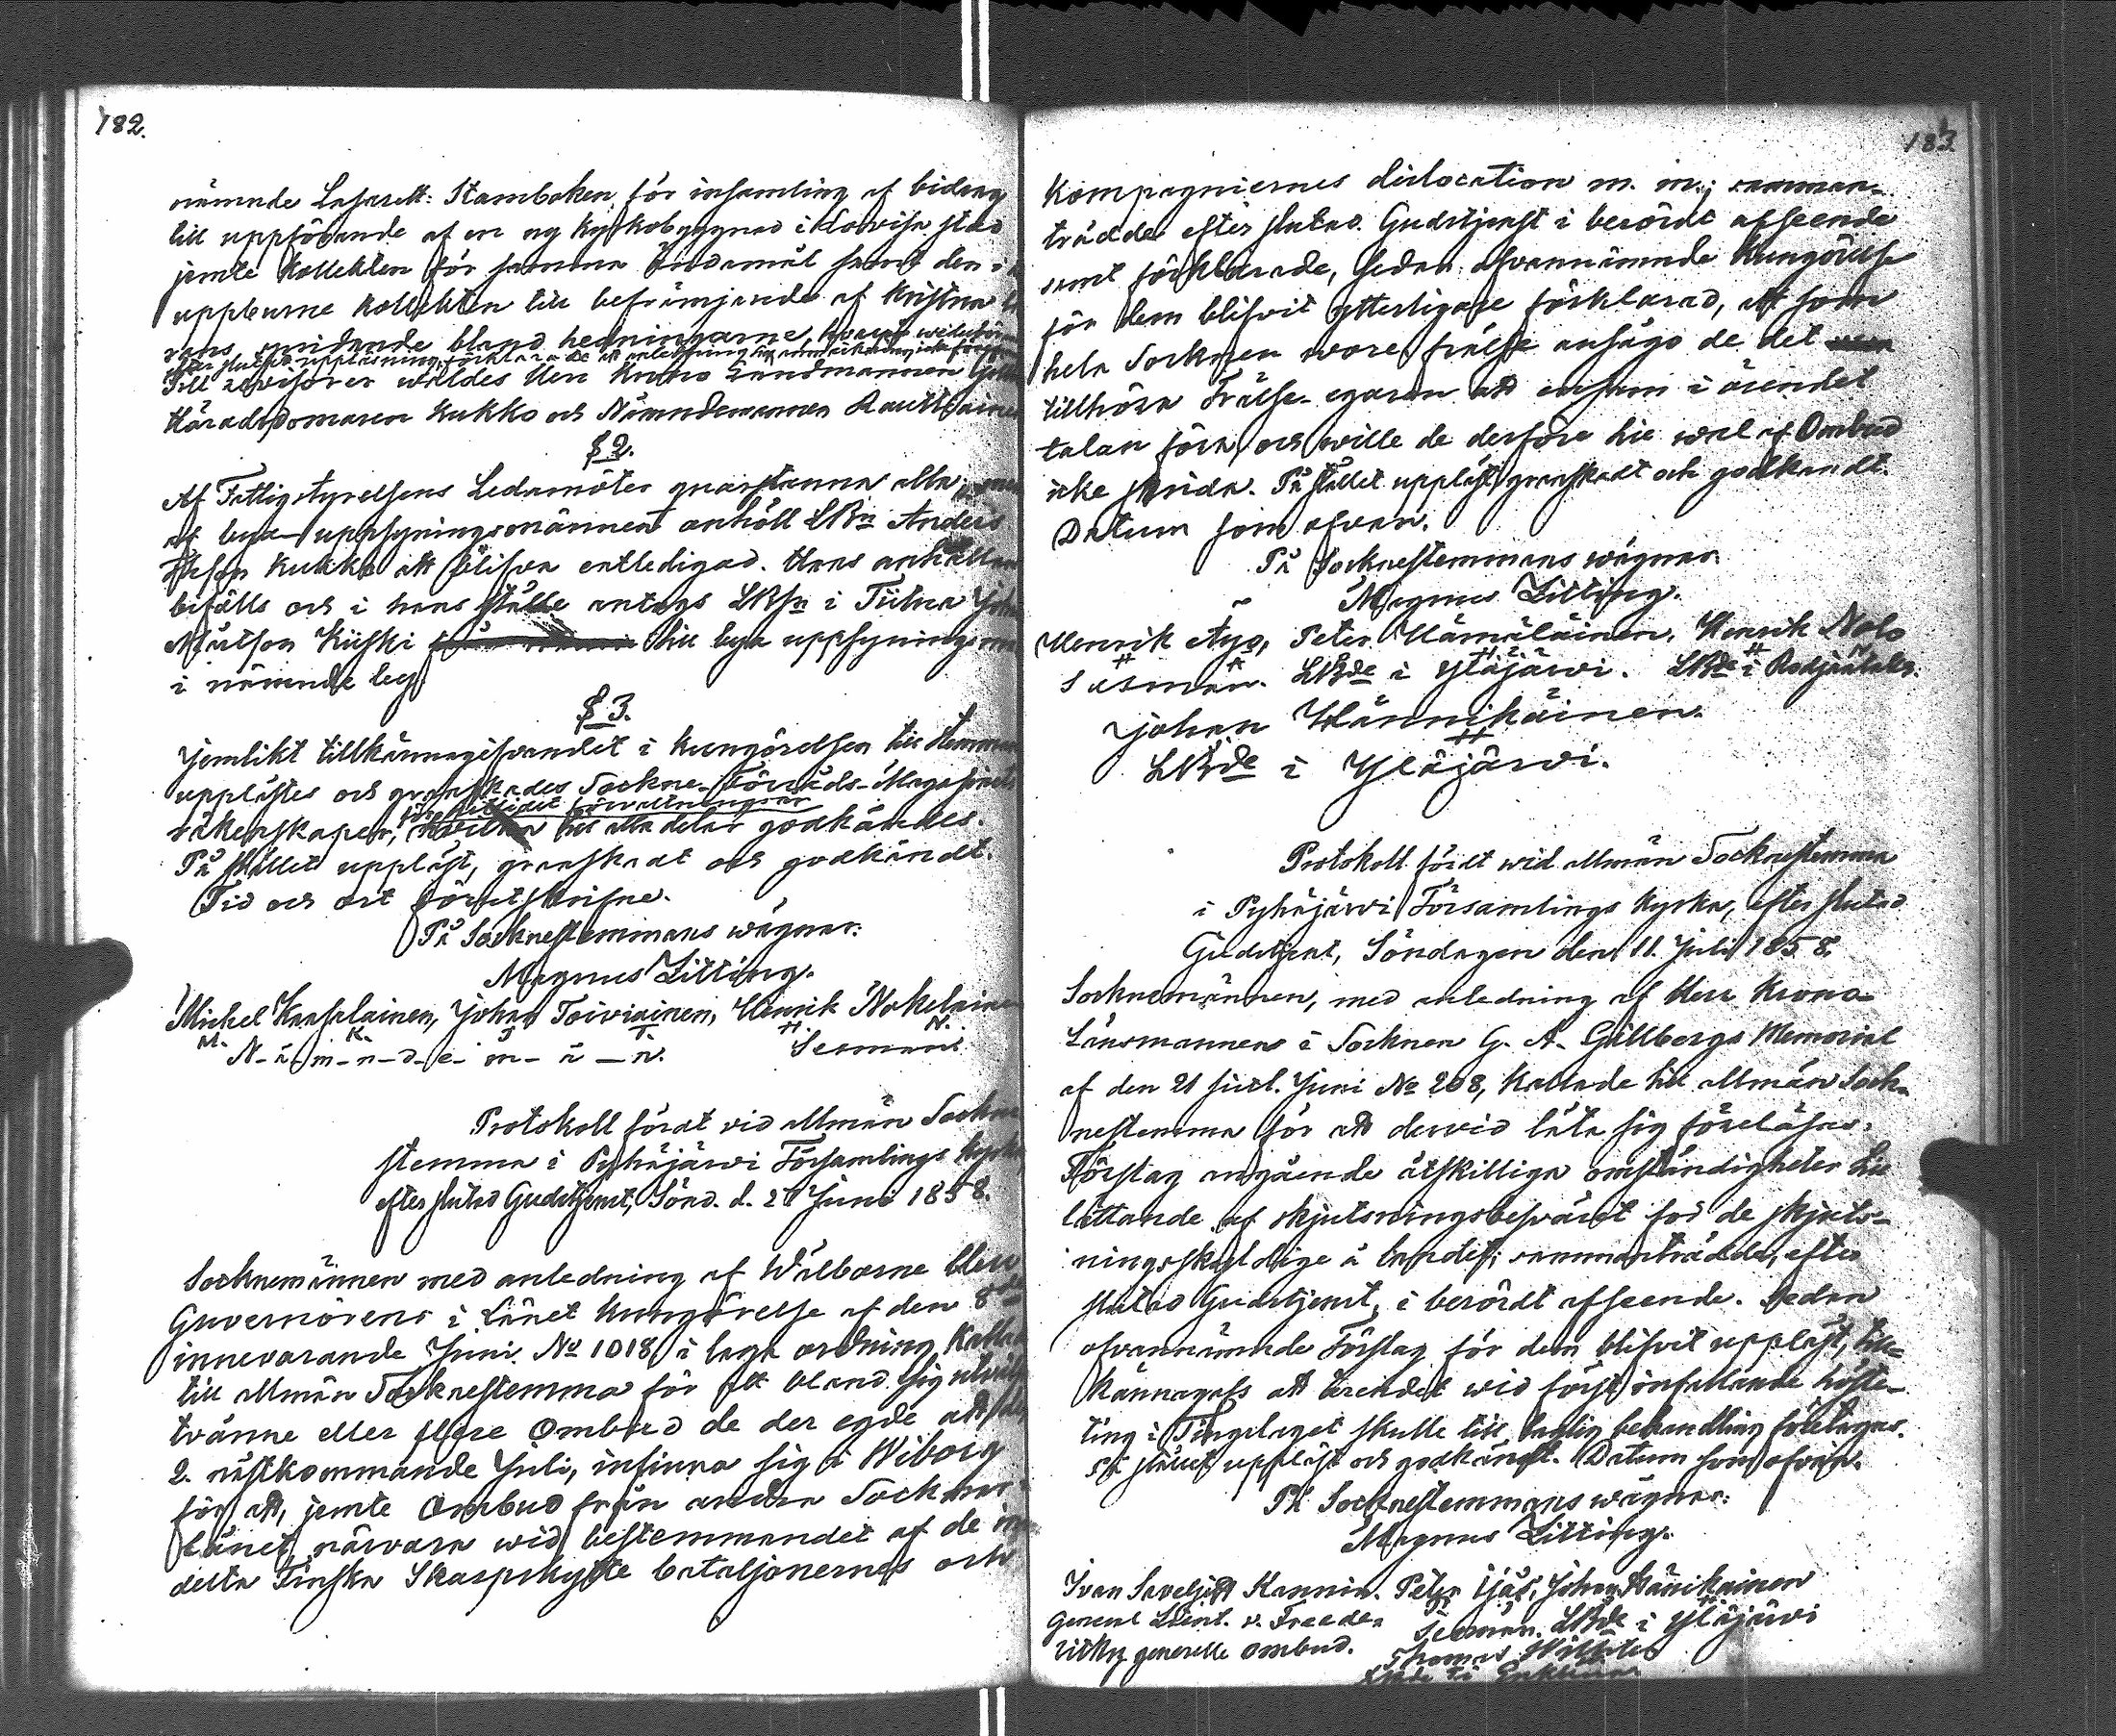 182.
nämnde Lasarett: Stamboken för insamling af bidrag
till uppförande af en ny kyrkobyggnad i Lovisa stad
jemte Kollekten för samma ändamål samt den
uppburne kollekten till befrämjande af Kristna
spridande bland hedningarne,
Till revisorer waldes Herr Krono Länsmannen
Häradsdomaren Kukko och Nämndemannen
§ 2.
Af Fattigstyrelsens Ledamöter qvarstanna alla;
af bya-uppsyningsmännen anhöll LBn Anders
Kukko att blifva entledigad. Hans anhållan
bifälls och i hans ställe antogs LBn i Tiitua Joh
Matsson Kiiski till bya uppsyningsman
i nämnde by
§ 3.
Jemlikt tillkännagifvandet i Kungörelsen till stemman
upplästes och granskades Sockne-Förråds-Magasinets
för sistlidet förvaltningsår
räkenskaper, till alla delar godkändes.
På stället uppläst, granskadt och godkändt.
Tid och ort förutskrifne.
På Socknestemmans wägnar:
Magnus Litting.
Michel Kaasalainen, Johan Toiviainen, Henrik Nokelainen
M. K. J. T. H. N.
N-ä-m-n-d-e-m-ä-n. Sexman
Protokoll fördt vid allmän Sockne
stemma i Pyhäjärvi Församlings kyrka
efter slutad Gudstjenst, Sönd. d. 27 Juni 1858.
Socknemännen med anledning af Wälborne Herr
Guvernörens i Länet Kungörelse af den 8de
innevarande Juni No 1018 i laga ordning kallade
till allmän Socknestemma för att bland sig utvälja
tvänne eller flere Ombud de der egde att den
2. nästkommande Juli, infinna sig i Wiborg
för att, jemte Ombud från andra Socknar i
länet närvara wid bestemmandet af de
detta Finska Skarpskytte bataljonernes och
183
Kompagniernes dislocation m. m.; samman-
trädde efter slutad Gudstjenst i berördt afseende
samt förklarade, sedan ofvannämnde Kungörelse
för dem blifvit ytterligare förklarad, att som
hela Socknen wore frälse ansågo de det
tillhöra Frälse-egaren att ensam i ärendet
talan föra och wille de derföre till wal af Ombud
icke skrida. På stället uppläst, granskadt och godkändt.
Datum som ofvan.
På Socknestemmans wägnar.
Magnus Litting.
Henrik Äyö, Peter Hämäläinen, Henrik Nalo
Sexmän. LBde i Yläjärvi. LBde i
Johan Hännikäinen.
LBde i Yläjärvi.
Protokoll fördt wid allmän Socknestemma
i Pyhäjärvi Församlings kyrka, efter slutad
Gudstjenst, Söndagen den 11. Juli 1858.
Socknemännen, med anledning af Herr Krono-
Länsmannen i Socknen G. A. Gillbergs Memorial
af den 21 sistl. Juni No 208, kallade till allmän Sock-
nestemma för att dervid låta sig föreläsas,
Förslag angående åtskilliga omständigheter till
lättande af skjutsningsbesväret för de skjuts-
ningsskyldige å landet; sammanträdde, efter
slutad Gudstjenst, i berördt afseende. Sedan
ofvannämnde Förslag för dem blifvit uppläst, till-
kännagafs att ärendet wid först infallande höste-
ting i Tingslaget skulle till laglig behandling företagas.
På stället uppläst och godkändt. Datum som ofvan.
På Socknestemmans wägnar:
Magnus Litting.
Ivan Saveljeff Kannin. Peter Äijäs, Johan Hänikäinen
General Löjtnt. v. Freede- Sexmän. LBde i Yläjärvi
ritky generelle ombud. Thomas